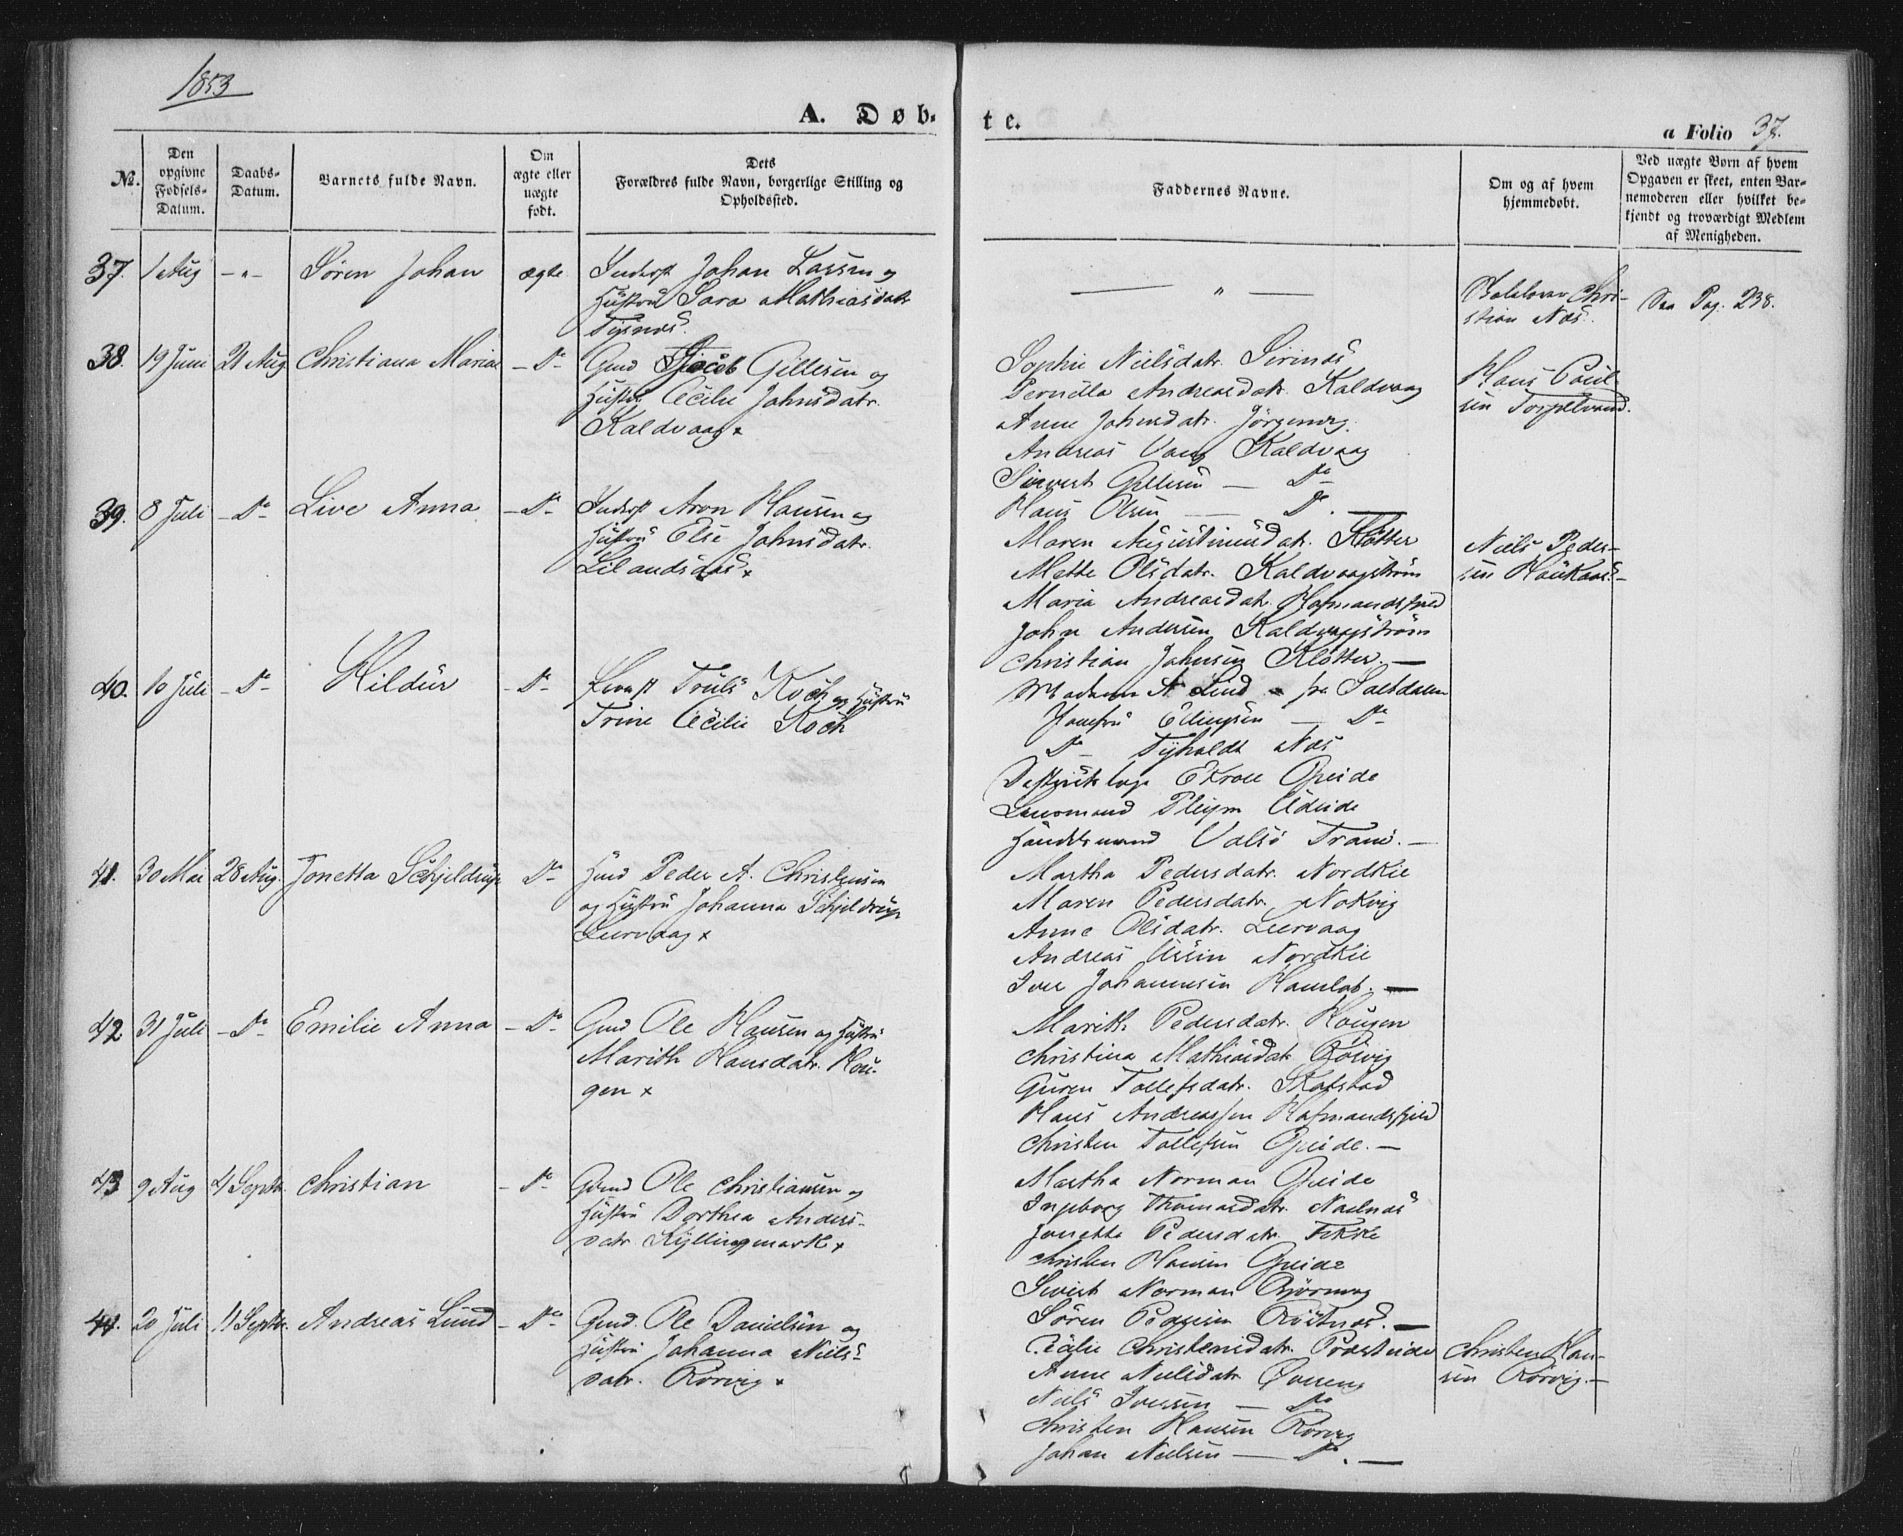 1853
A. Døb-
te.
a Folio 37.
No.
Den opgivne Fødsels-Datum.
Daabs-Datum.
Barnets fulde Navn.
Om ægte eller uægte født.
Dets Forældres fulde Navn, borgerlige Stilling og Opholdssted.
Faddernes Navne.
Om og af hvem hjemmedøbt.
Ved uægte Børn af hvem Opgaven er skeet, enten Barnemoderen eller hvilket bekjendt og troværdigt Medlem af Menigheden.
37. 1 Aug - " - Søren Johan ægte Inderst Johan Larsen og
Hustru Sara Mathiasdatr
Tysnæs.
— " —
Christian Næs.
Saa Pag. 238.
38. 19 Juni 21 Aug Christiana Maria - Do - Gmd Jacob Gillesen og
Hustru Cecilie Johnsdatr.
Kaldvaag x
Sophie Nielsdatr. Sirinæs
Pernilla Andreasdatr. Kaldvaag
Anne Johnsdatr. Jörgen
Andreas Vang Kaldvaag
Sivert Gillesen — Do
Hans Olsen — Do. —
Hans Paul-
sen
39. 8 Juli - Do - Live Anna - Do - Inderst Aron Hansen og
Hustru Else Johnsdatr.
Lilandsaas x
Maren Augustinusdatr. Kløtter
Mette Olsdatr. Kaldvaagstrøm
Maria Andreasdatr. Hafmandsfjeld
John Andersen Kaldvaagstrøm
Christian Johnsen Kløtter. —
Niels Peder-
sen Haukaas. —
40. 10 Juli - Do - Hildur - Do - Truls Koch og Hustru
Trine Cecilie Koch
Madame A. Lind fra Saltdalen
Jomfru Ellingsen — Do
Do Tyholdt Næs
Distriktslæge Kroll Opeide
Lensmand Pleym
Handelsmand Valsø Tranø. —
41. 30 Mai 28 Aug. Jonetta Schjeldrup Do - Hmd Peder A. Christensen
og Hustru Johanna Schjeldrup
Leervaag x
Martha Pedersdatr. Nordkil
Maren Pedersdatr. Nokvig
Anne Olsdatr. Leervaag
Andreas Nordkil
Iver Johannesen Hamlot. —
42 31 Juli - Do - Emilie Anna - Do - Gmd Ole Hansen og Hustru
Marith Hansdatr. Hou-
gen x
Marith Pedersdatr. Hougen
Christina Mathiasdatr. Rørvig
Guren Tollefsdatr. Skafstad
Hans Andreassen Hafmandsfjeld
Christen Tollefsen Opeide. —
43 9 Aug 4 Septbr. Christian - Do - Gmd Ole Christiansen og
Hustru Dorthea Anders-
datr. Kyllingmark x
Martha Norman Opeide
Ingeborg Thomasdatr. Naelnæs
Jonetta Pedersdatr. Fikke
Christen Hansen Opeide
Sivert Norman
Søren
44. 20 Juli 4 Septbr. Andreas Lund - Do - Gmd. Ole Danielsen og
Hustru Johanna Niels-
datr. Rörvig x
Cecilie Christensdatr. Præsteide
Anne Nielsdatr. Øvereng
Niels Iversen — Do
Christen Hansen Rörvig
Johan Nielsen — Do. —
Christen Han-
sen Rörvig. —